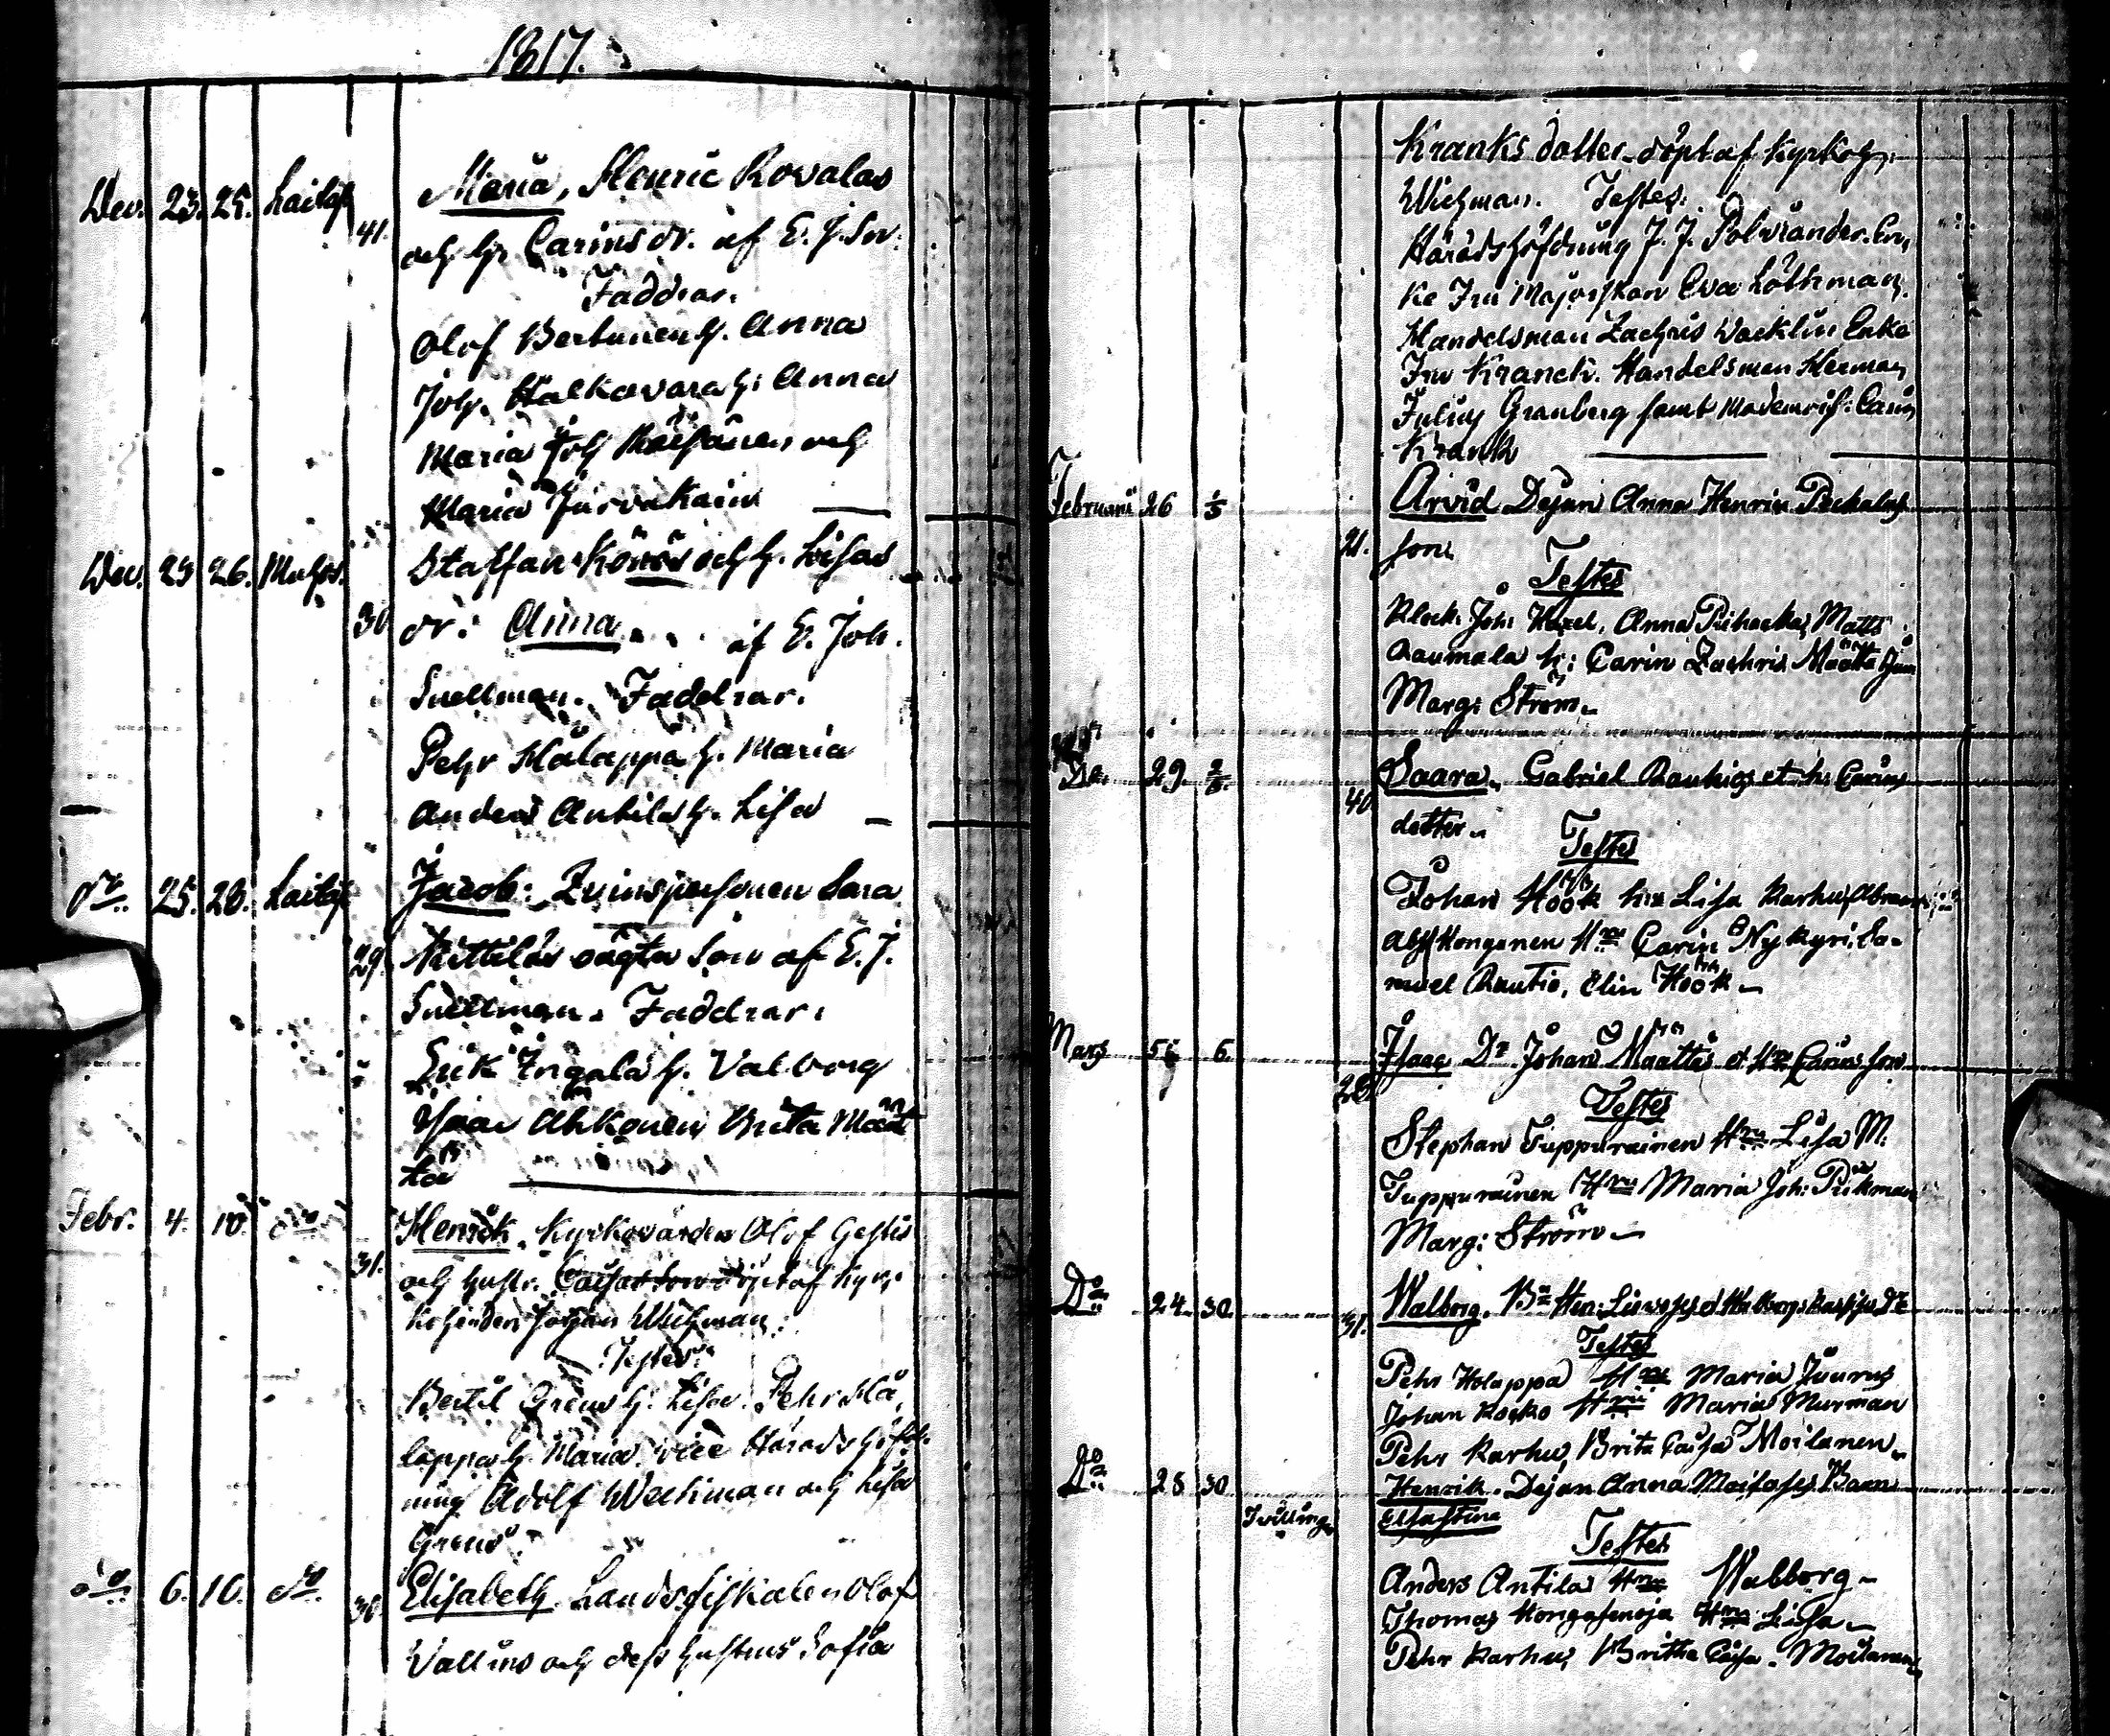 1817.
Dec. 23. 25. Laitas 41. Maria, Henric Rovalas
och h. Carins dr. af E. J. Sn.
Faddrar.
Olof Bertunen h. Anna
Joh. Halkavara h: Anna
Maria Joh och
Maria Jurvakain
Dec. 23 26. Muhos. 30 Staffan och h. Lisas
dr: Anna af E. Joh.
Snellman. Faddrar.
Pehr Hålappa h. Maria
Anders Antila h. Lisa
do. 25. 28. Laitas 29. Jacob: Sara
Kittiläs oägta Son af E. J.
Snellman. Faddrar.
Erik Ingala h. Valborg
Isaac Ahkonen Brita Määt
tä
Febr. 4. 10. do 31. Henrik. Kyrkovärden Olof
och hustr. Caisas Son döpt af Kyr,
Johan Wichman.
Testes.
Bertil Grens h. Lisa. Pehr Hå,
lappa h. Maria. vice Häradshöfd,
ning Adolf Wichman och Lisa
Grens.
do. 6. 10. do. 30. Elisabeth Landsfiskalen Olof
Vallins och dess hustrus Sofia
Kranks dotter döpt af Kyrkoh.
Wichman. Testes.
Häradshöfding J. J. Polviander. En,
ke Fru Majorskan Eva Löthman,
Handelsman Zachris Wacklin Enka
Fru Kranck. Handelsman Herman
Julius Granberg samt
Krank
Februari 26 1/3 21. Arvid Dejan Anna Henrix Pickalas
son.
Testes
Klock. Joh: Anna Matts
Raumala h: Carin Zachris Määttä
Marg: Ström.
Do. 29. 2/3. 40 Saara. Gabriel et h: Carins
dotter.
Testes
Johan Höök hru Lisa Karhu,
Honganen Hru Carin Nykyri. Sa-
muel Rautio, Elin Höök
Mars 5 6 28 Isaac Dr Johan Määttäs et Hru Carins son
Testes
Stephan Tuppurainen Hru Lisa M:
Tuppurainen Hru Maria Joh: Pickman
Marg: Ström
Do 24. 30. 31. Walborg. Hen:
Testes
Pehr Holappa Hru Maria Juurus
Johan Kosko Hru Maria Murman
Pehr Karhu, Brita Caisa Moilanen
Do 28 30 Henrik. Dejan Anna Barn
Tvilling Elsa Stina
Testes
Anders Antila Hru Walborg
Thomas Hongasenoja Hru Lisa
Pehr Karhu, Britha Caisa. Moilanen